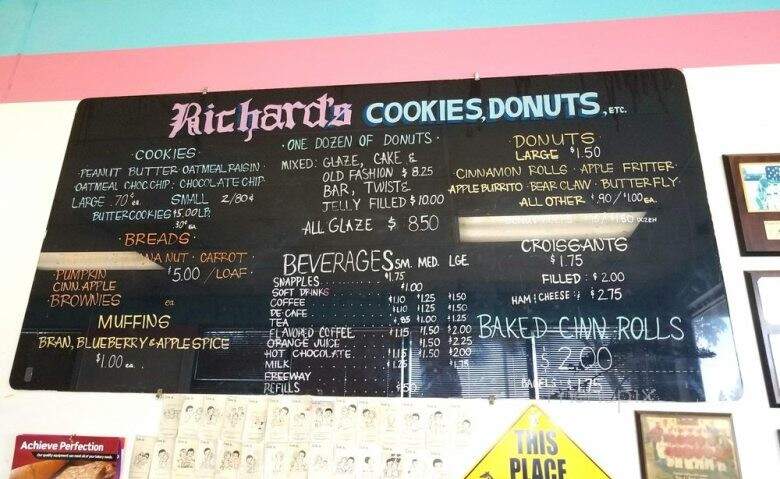 Richard's COOKIES, DONUTS, ETC.
COOKIES
PEANUT BUTTER · OATMEAL RAISIN ·
OATMEAL CHOC.CHIP · CHOCOLATE CHIP
LARGE .70¢ ea. SMALL 2/80¢
BUTTER COOKIES $5.00 LB.
.30¢ EA.
· BREADS ·
NA NUT · CARROT ·
PUMPKIN $5.00 / LOAF
CINN. APPLE
BROWNIES ea
MUFFINS
BRAN, BLUEBERRY & APPLE SPICE
$1.00 ea.
· ONE DOZEN OF DONUTS ·
MIXED: GLAZE, CAKE &
OLD FASHION $ 8.25
BAR, TWIST &
JELLY FILLED $ 10.00
ALL GLAZE $ 8.50
BEVERAGES SM. MED. LGE.
SNAPPLES $1.75
SOFT DRINKS $1.00
COFFEE $1.10 $1.25 $1.50
DE CAFE $1.10 $1.25 $1.50
TEA $.85 $1.00 $1.25
FLAVORED COFFEE $1.15 $1.50 $2.00
ORANGE JUICE $1.50 $2.25
HOT CHOCOLATE $1.15 $1.50 $2.00
MILK $1.25 $1.75
FREEWAY
REFILLS
DONUTS
LARGE $1.50
CINNAMON ROLLS · APPLE FRITTER ·
APPLE BURRITO · BEAR CLAW · BUTTERFLY ·
ALL OTHER .90 / $1.00 EA.
CROISSANTS
$1.75
FILLED : $ 2.00
HAM & CHEESE : $ 2.75
BAKED CINN ROLLS
$ 2.00
BAGELS $1.75
Achieve Perfection
THIS
PLACE